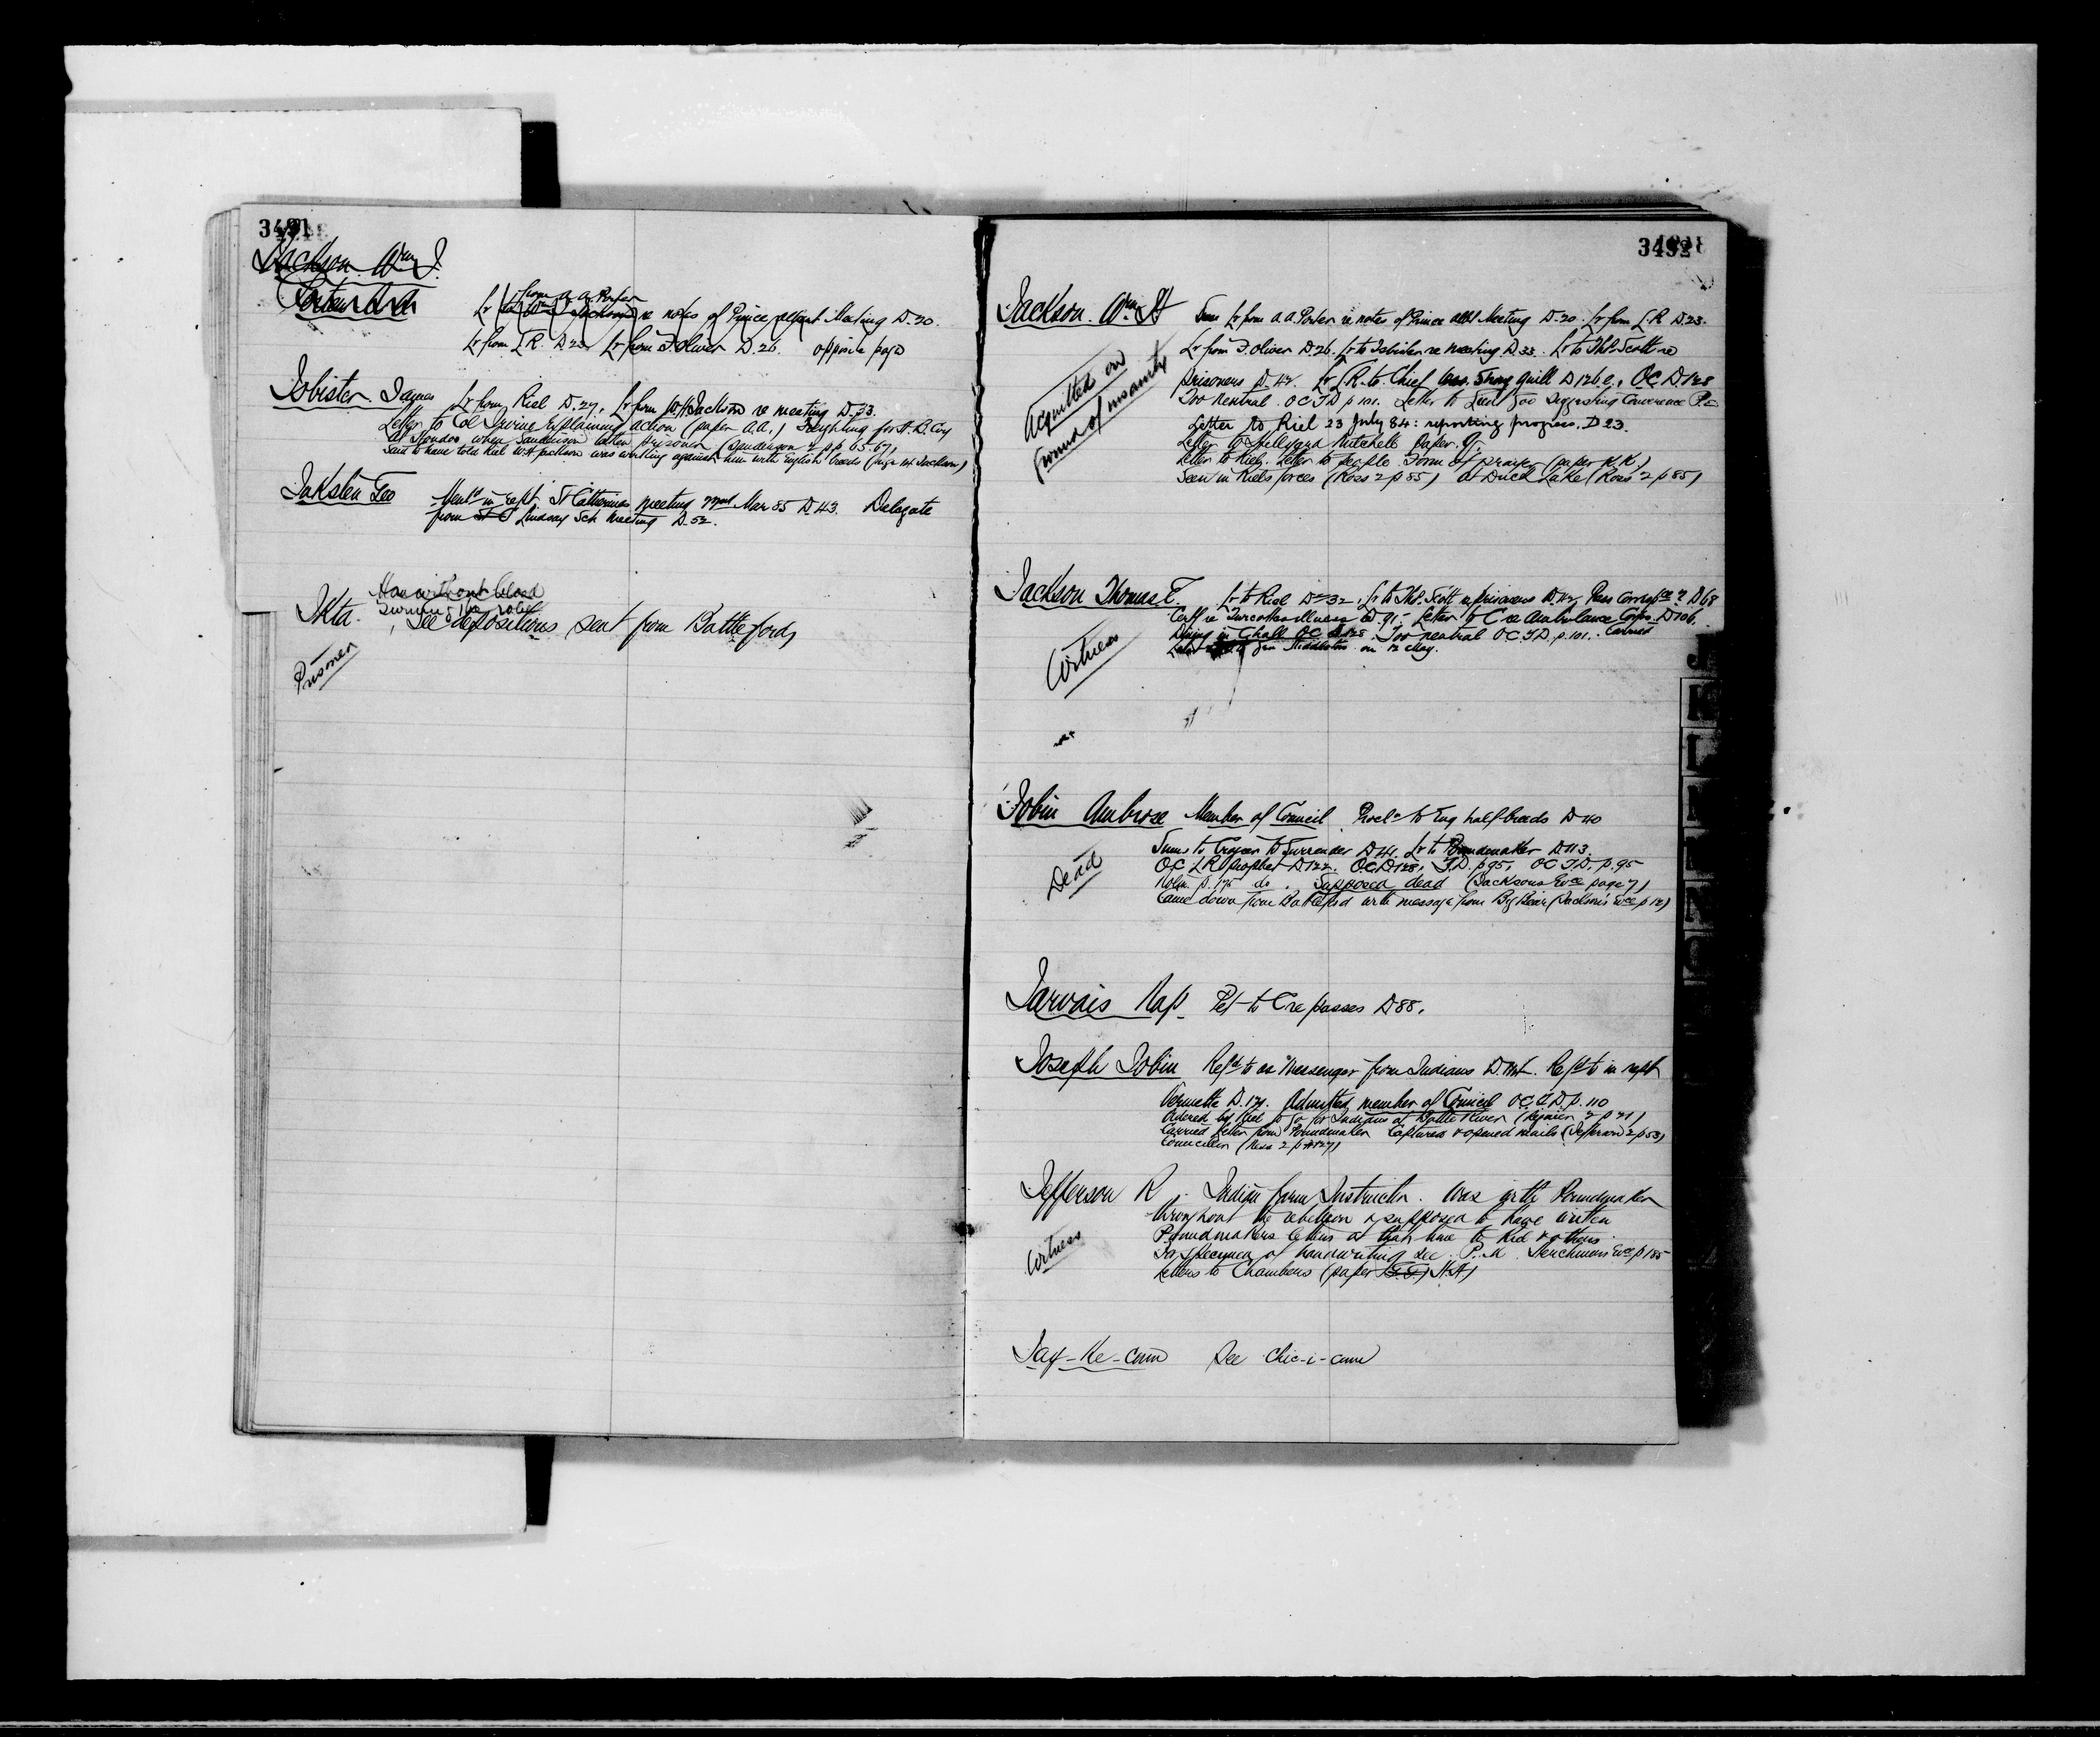 3491
Jackson Wm J.
Porter A A
from A. A. Porter
Lr to Wm Jackson re notes of Prince Albert Meeting D. 20.
Lr from L R. D. 23. Lr from F. Oliver D. 26. opposite page
Isbister James Lr from Riel D. 27. Lr from W. H Jackson re meeting D. 33.
Letter to Col Irvine explaining action (paper A.A.) Freighting for H. B. Coy
At Hoodoo when Sanderson taken prisoner (Sanderson 2 pp 65-67)
Said to have told Riel W H Jackson was working against him with English breeds
Inksten Geo Mentd in rept St Catherines meeting 22nd Mar 85 D. 43. Delegate
from St C Lindsay Sch Meeting D. 52.
Man without blood
Ikta. See depositions sent from Battleford,
Prisoner
3492
Jackson. Wm H Lr from A. A. Porter re notes of Prince Albt Meeting D. 20. Lr from L R D. 23.
Lr from F. Oliver D 26. Lr to Isbister re meeting D. 33. Lr to Thos. Scott re
prisoners D. 42. Lr L R. to Chief Strong Quill D 126 e. OC. D. 128
Too neutral. OC T D p 101. Letter to suggesting Conference
Acquitted on
ground of insanity
Letter to Riel 23 July 84: reporting progress. D 23.
Letter to Hillyard Mitchell Paper
Letter to Riel. Letter to people. Form of prayer (paper K K)
Seen in Riels forces (Ross 2 p 85) At Duck Lake (Ross 2 p 85)
Jackson Thomas E. Lr to Riel D 32. Lr to Thos. Scott re prisoners D. 42. D 68
Certf re Turcottes illness D. 91. Letter to C re Ambulance Corps. D 106.
OC D 128. Too neutral OC T D. p. 101. Carried
Letter to Gen Middleton on 12 May.
Witness
Jobin Ambrose Member of Council Procln to Eng half breeds D 40
Sums to Crozier to Surrender D 41. Lr to Poundmaker D. 113.
OC. L R prophet D 122. O.C. D 128. T. D. p 95. OC T D. p. 95
p. 175 do. Supposed dead (Jacksons Evce page 7)
Came down from Battleford with message from Big Bear (Jackson's Evce p 12)
Dead
Jarvais Nap. Pet to C re passes D 88.
Joseph Jobin Refd to as Messenger from Indians D. Refd to in rept
Vermette D. 171. Admitted member of Council OC. T. D. p. 110
Ordered by Riel to go for Indians at Battle River
Carried letter from Poundmaker Captured & opened mails (Jefferson 2 p 53)
Councillor (Ross 2 p 127)
Jefferson R. Indian farm Instructor. Was with Poundmaker
throughout the rebellion & supposed to have written
Poundmakers letters at that time to Riel & others.
For specimen of handwriting see P. M. Evce p 185
Letters to Chambers (paper H.H)
Witness
Jay-Ke-Cum See Chic-i-cum
K
L
N